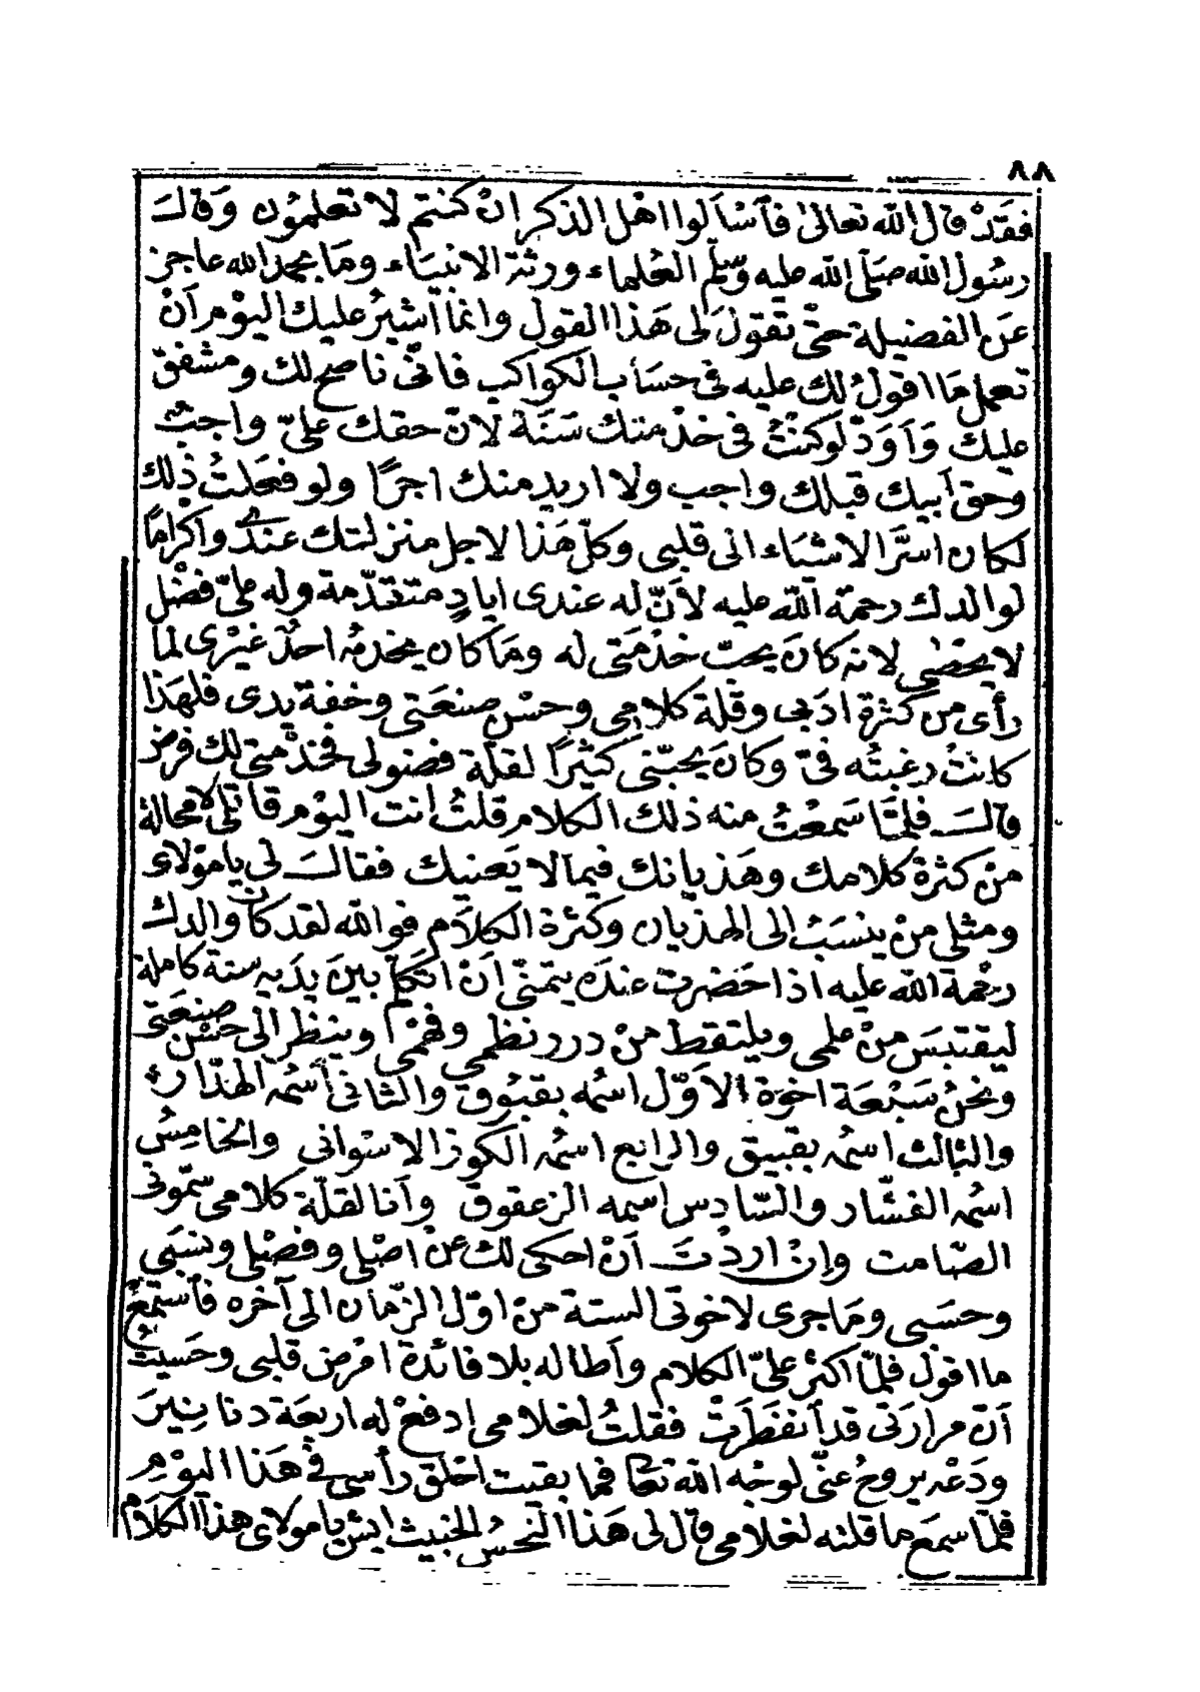 ٨٨
فقَدْ قال الله تعالىٰ فاَسْأَلوا اهْل الذكر انْ كنتم لا تعلمُون وَقالَ
رسُول الله صَلّى الله عليه وسّلم العُلماء ورثة الانبيَاء ومَا بحمد الله عاجز
عَن الفضيلة حتّى تقولَ لى هَذا القول وانما اشيرُ عليك اليوْم اَنْ
تعمل مَا اقولُ لك عليه فى حسَاب الكواكب فانّى ناصح لك ومشفق
عليك وَاَوَدّ لوكنْتُ فى خدْمتك سَنَة لانّ حقك علىّ واجبٌ
وحق أبيك قبلك واجب ولا اريد منك اجرًا ولو فعَلتُ ذلك
لكان اسَّرَ الاشيَاء الى قلبى وكلّ هَذا لاجل منزلتك عندى واكرامًا
لوالدك رحمَة الله عليه لأنّ له عندى ايادٍ متقدّمة وله علىّ فضْل
لا يحصٰى لانه كانَ يحبّ خدْمَتى له ومَا كان يخدمُه احدٌ غيْرى لما
رأى من كثرة ادَبى وقلة كلامى وحسْن صنعَتى وخفة يدى فلهَذا
كانتْ رغبتُه فىّ وكانَ يحبّنى كثيرًا لقلة فضولى فخدْمتى لك فرض
قالَ فلمَّا سَمعْتُ منه ذلك الكلام قلتُ انت اليوْم قاتلى لا محالة
منْ كثرة كلامك وهَذيانك فيما لا يَعنيك فقالَ لى يا موْلاى
ومثلى منْ ينسَبُ الى الهذيان وكثرة الكلاَم فوالله لقد كان والدك
رحْمة الله عليه اذا حَضرت عندَه يتمنّى اَنْ اتكلم بينَ يدَيه سنة كاملة
ليقتبسَ منْ علمى ويلتقط منْ درر نظمى وفهْمى وينظر الى حسْن صنعَتى
ونحنُ سَبْعَة اخوَة الاَوّل اسْمه بقبُوق والثانى اسْمه الهدّار
والثالث اسْمه بقبيق والرابع اسْمه الكوز الاسْوانى والخامِسُ
اسْمه الفشّار والسّادس اسمه الزعقوق وأنا لقلّة كلامى سمّونى
الصّامت وإن اردْتَ اَنْ احكى لك عنْ اصْلى وفصْلى ونسَبى
وحسَبى ومَا جرى لاخوتى الستة منْ اوّل الزّمان الى آخره فأستمعْ
ما اقول فلمّا اكثر علىّ الكلام وأطاله بلا فائدة امْرض قلبى وحَسيْتُ
اَنّ مرارتى قد أنفطَرَتْ فقلتُ لغلامى ادفعْ له اربعَة دنانِيرَ
ودَعْه يروحُ عنّى لوجْه الله تعالى فما بقيت احْلق رأسى فى هَذا اليوْمِ
فلمّا سمعَ ما قلته لغلامى قال لى هَذا النحْسُ الخبيث ايش يا مولاى هذا الكلاَم